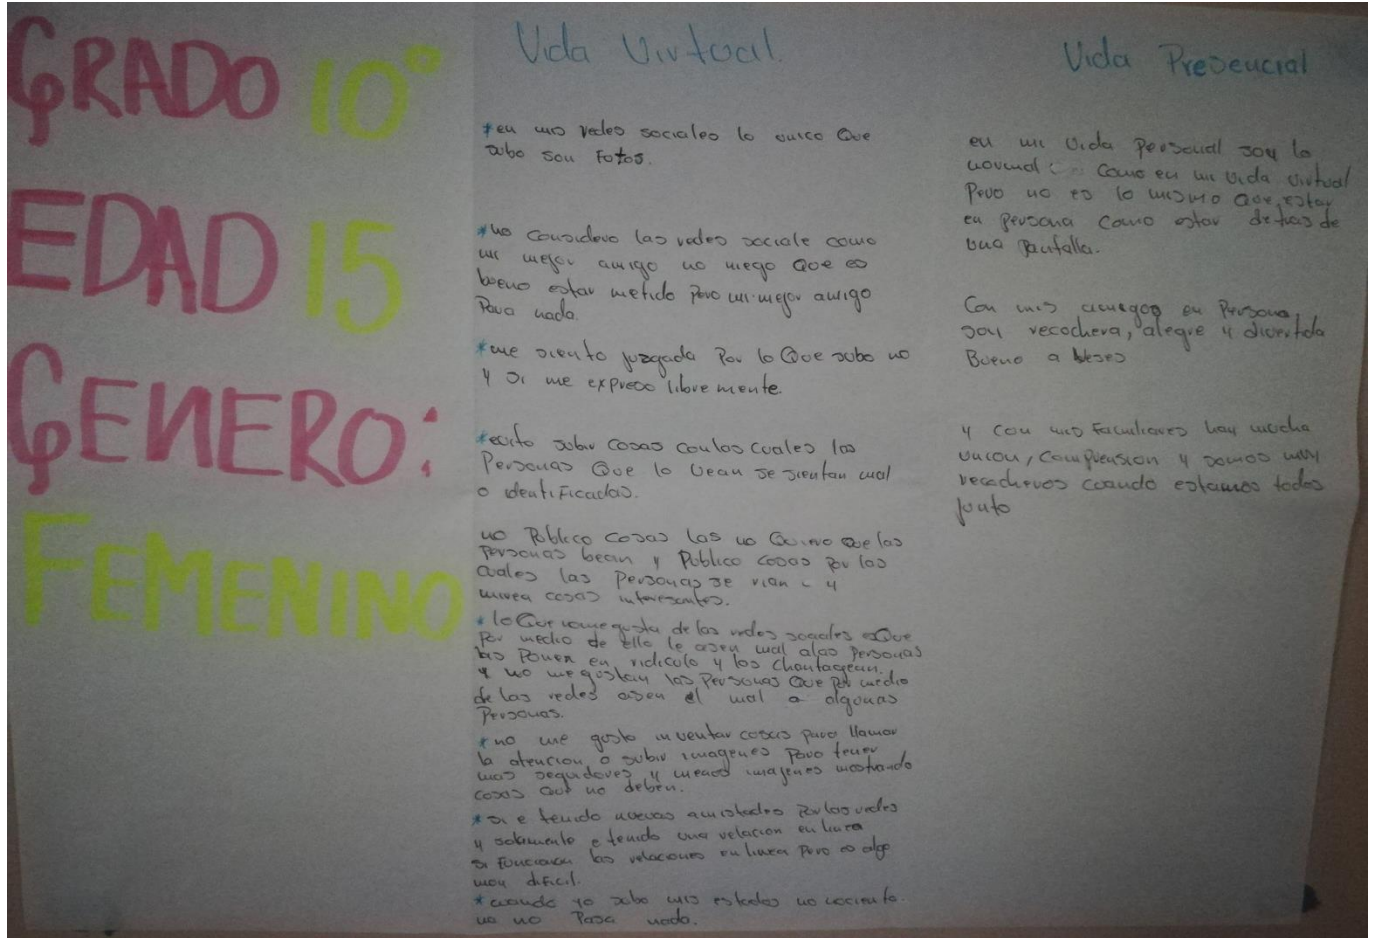 GRADO 10°
EDAD 15
GENERO:
FEMENINO
Vida Virtual
*en mis redes sociales lo unico Que
subo son Fotos.
*no considero las redes sociale como
mi mejor amigo no niego Que es
bueno estar metido pero mi mejor amigo
Para nada.
*me siento juzgada Por lo Que subo no
y si me expreso libre mente.
*evito subir cosas con las cuales las
Personas Que lo vean se sientan mal
o identificadas.
no Publico cosas las no Quiero Que las
Personas bean y Publico cosas por las
cuales las Personas se rian y
miren cosas interesantes.
*lo Que no me gusta de las redes sociales es Que
Por medio de ello le asen mal alas Personas
las Ponen en ridiculo y los chantagean.
y no me gustan las Personas Que por medio
de las redes asen el mal a algunas
Personas.
*no me gusta inventar cosas para llamar
la atencion o subir imagenes para tener
mas seguidores y menos imagenes mostrando
cosas que no deben.
*si e tenido nuevas amistades Por las redes
y solamente e tenido una relacion en linea
si Funcionan las relaciones en linea pero es algo
muy dificil.
*cuando yo subo mis estados no
no no Pasa nada.
Vida Presencial
en mi vida Personal soy lo
normal como en mi vida virtual
Pero no es lo mismo que estar
en persona como estar detras de
una pantalla.
Con mis amigos en Persona
soy recochera, alegre y divertida
Bueno a beses
y con mis Familiares hay mucha
union, comprension y somos muy
recocheros cuando estamos todos
junto